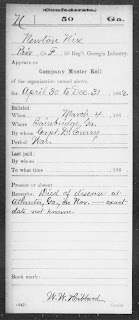 (Confederate.)
N 50 Ga.
Newton Nix
Priv, Co. F, 50 Reg't Georgia Infantry.
Appears on
Company Muster Roll
of the organization named above,
for April 30 to Dec. 31, 1862.
Enlisted:
When March 4, 186
Where Bainbridge, Ga.
By whom Capt. D. Curry
Period War.
Last paid:
By whom
To what time , 186
Present or absent
Remarks: Died of disease at
Atlanta, Ga., in Nov. — exact
date not known.
Book mark:
W. W. Hibbard
(642) Copyist.